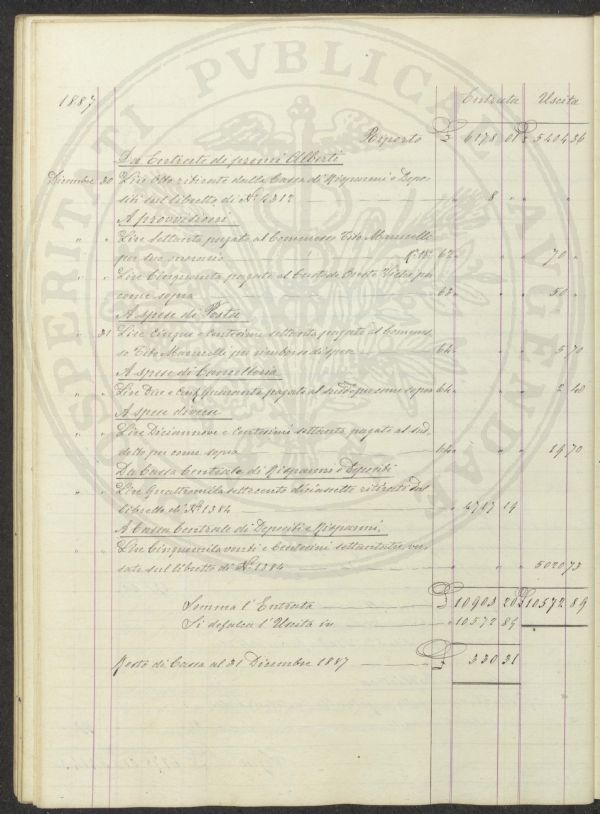 PROSPERITATI PVBLICAE AVGENDAE
1887 Entrata Uscita
Riporto £ 6178 01 £ 5404 36
Da Entrate de premi Alberti
Dicembre 30 Lire Otto ritirate dalla Cassa di Risparmi e Depo-
siti sul libretto di N.° 4312 " 8 " " "
A provvisioni
" " Lire Settanta pagate al Commesso Tito Marucelli
per suo 62 " " 70 "
" " Lire Cinquanta pagate al Custode Oreste per
come sopra 63 " " 50 "
A spese di Posta
" 31 Lire Cinque e Centesimi settanta pagate al Commes-
so Tito Marucelli per rimborso di spese 64 " " 5 70
A spese di Cancelleria
" " Lire Due e Cent. Quaranta pagate al sudd.° per come sopra 64 " " 2 40
A spese diverse
" " Lire Diciannove e Centesimi settanta pagate al sud-
detto per come sopra 64 " " 19 70
Da Cassa Centrale di Risparmi e Depositi
" " Lire Quattromila settecento diciassette ritirate dal
libretto di N.° 1384 " 4717 19
A Cassa Centrale di Depositi e Risparmi
" " Lire Cinquemila venti e Centesimi settantatre ver-
sate sul libretto di N.° 1384 " " " 5020 73
Somma l'Entrata £ 10903 20 £ 10572 89
Si defalca l'Uscita in " 10572 89
Resto di Cassa al 31 Dicembre 1887 £ 330 31